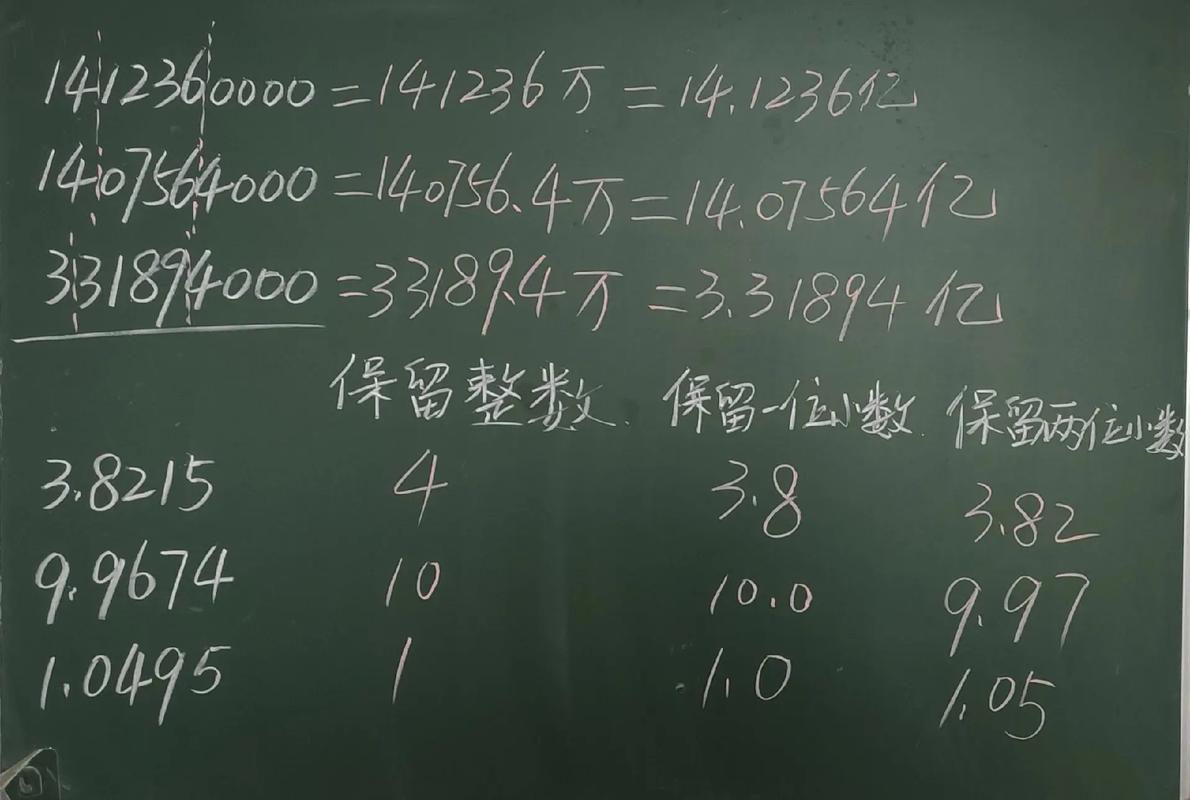 1412360000=141236万=14.1236亿
1407564000=140756.4万=14.07564亿
331894000=33189.4万=3.31894亿
保留整数 保留一位小数 保留两位小数
3.8215 4 3.8 3.82
9.9674 10 10.0 9.97
1.0495 1 1.0 1.05